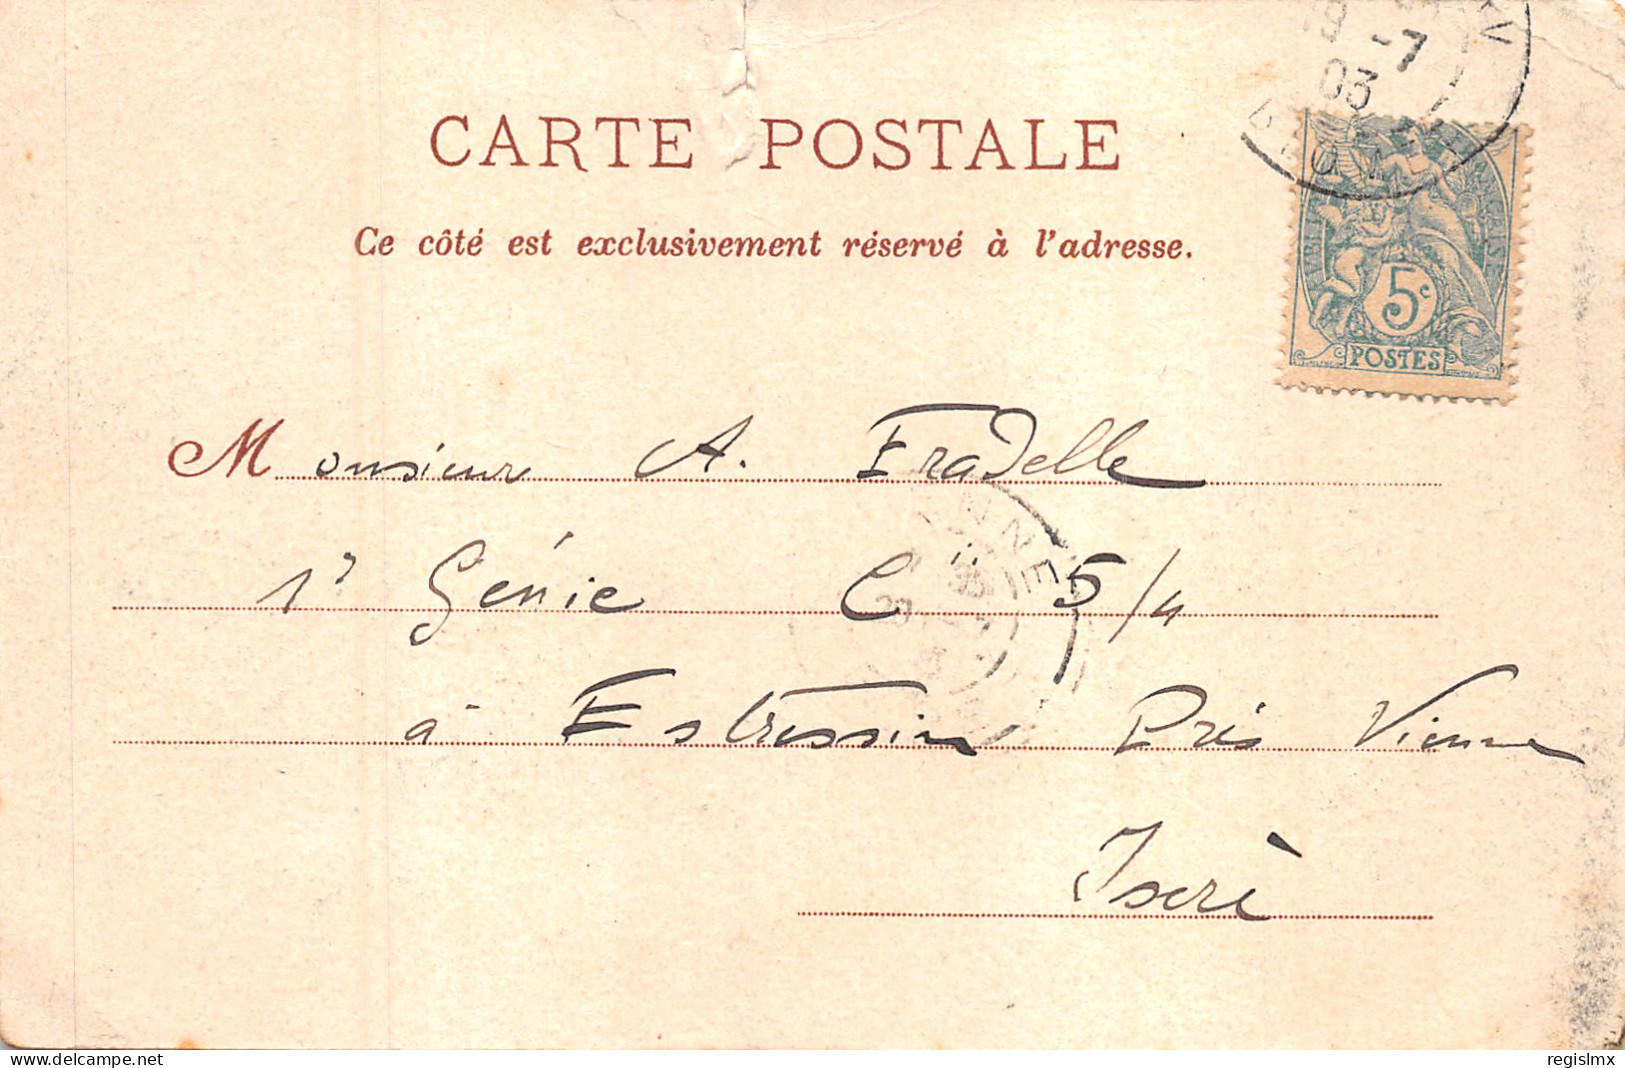 19 -7
03
CARTE POSTALE
Ce côté est exclusivement réservé à l'adresse.
5c
POSTES
Monsieur A. Fradelle
1r Génie C 5/4
à Estressin Près Vienne
Iserè
regislmx
delcampe.net